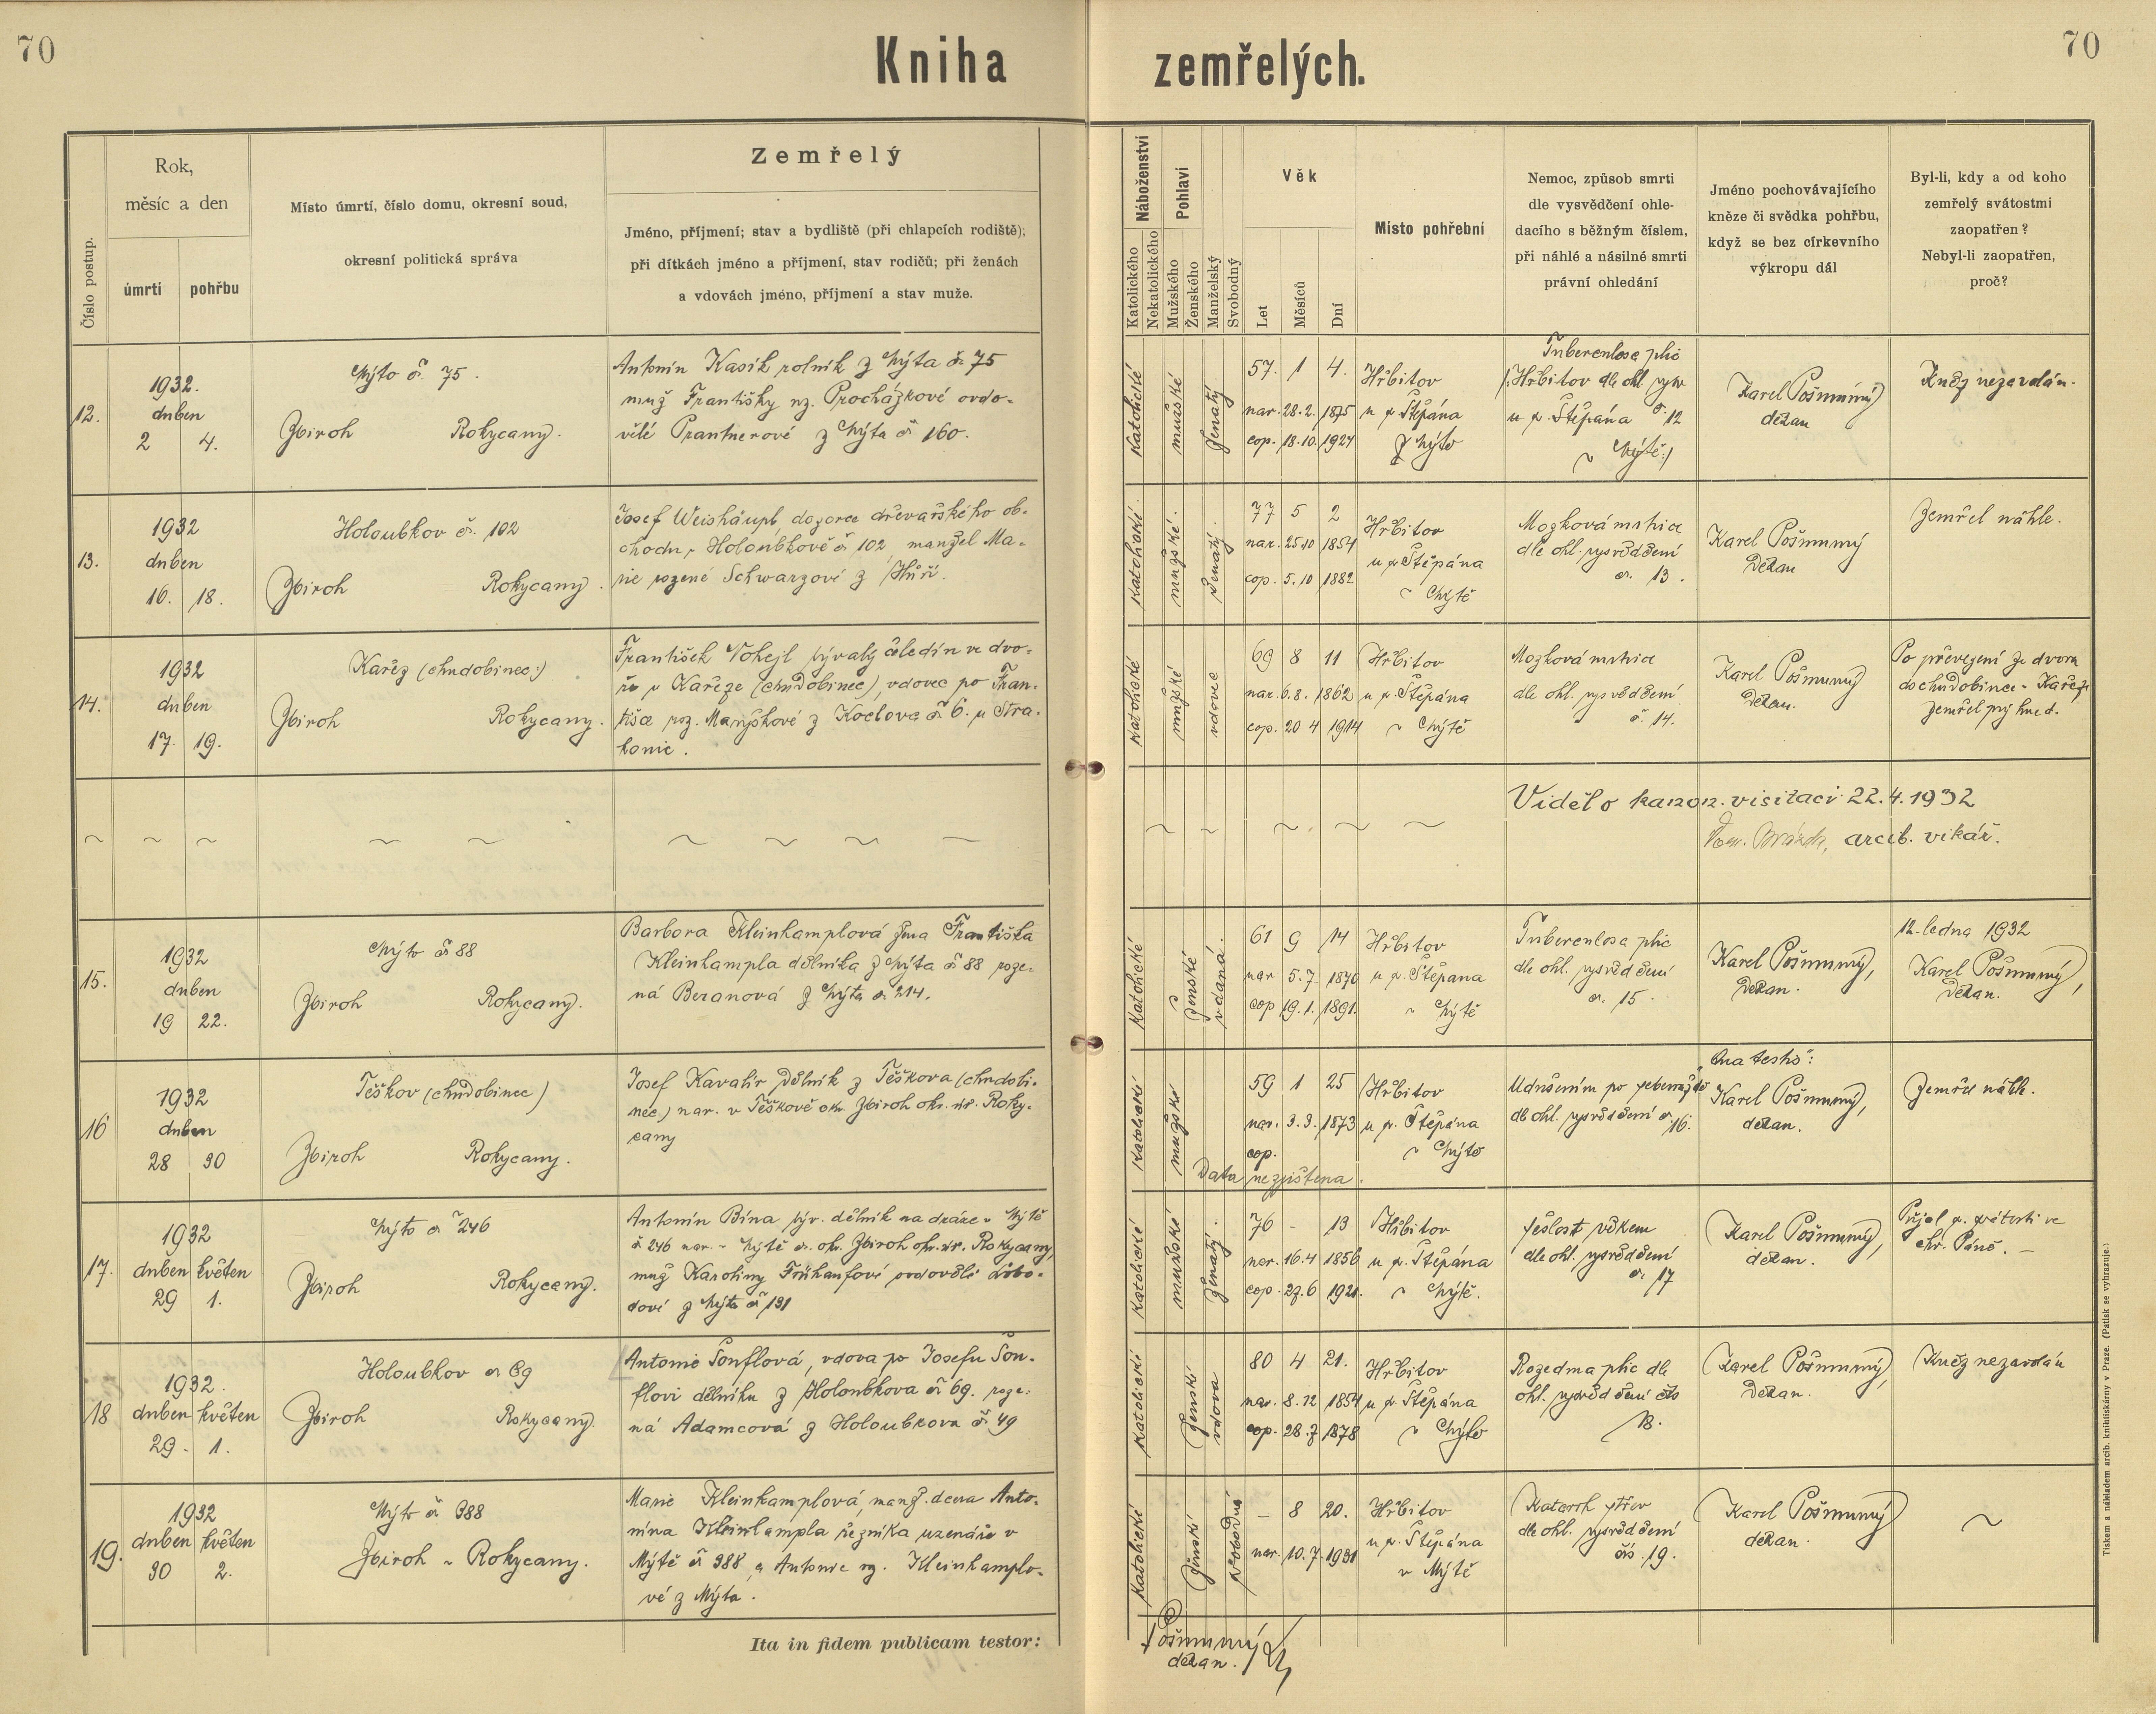 70
Kniha zemřelých.
70
Číslo postup.
Rok,
měsíc a den
úmrtí
pohřbu
Místo úmrtí, číslo domu, okresní soud,
okresní politická správa
Zemřelý
Jméno, příjmení; stav a bydliště (při chlapcích rodiště);
při dítkách jméno a příjmení, stav rodičů; při ženách
a vdovách jméno, příjmení a stav muže.
Náboženství
Katolického
Nekatolického
Pohlaví
Mužského
Ženského
Manželský
Svobodný
Věk
Let
Měsíců
Dní
Místo pohřební
Nemoc, způsob smrti
dle vysvědčení ohle-
dacího s běžným číslem,
při náhlé a násilné smrti
právní ohledání
Jméno pochovávajícího
kněze či svědka pohřbu,
když se bez církevního
výkropu dál
Byl-li, kdy a od koho
zemřelý svátostmi
zaopatřen?
Nebyl-li zaopatřen,
proč?
12.
1932.
duben
2 4.
Mýto č. 75.
Zbiroh Rokycany.
Antonín Kasík rolník z Mýta č. 75
muž Františky roz. Procházkové ovdo-
vělé Prantnerové z Mýta č 160.
Katolické
mužské
ženatý.
57. 1 4.
nar. 28. 2. 1875
cop. 18. 10. 1924
Hřbitov
u sv. Štěpána
z Mýto
Tuberculosa plic
(:Hřbitov dle ohl. vysv.
u sv. Štěpána č. 12
v Mýtě:)
Karel Pošmurný
děkan
Kněz nezavolán.
13.
1932
duben
16. 18.
Holoubkov č. 102
Zbiroh Rokycany.
Josef Weishäupl dozorce dřevařského ob-
chodu v Holoubkově č 102, manžel Ma-
rie rozené Schwarzové z Huří.
Katolické
mužské.
ženatý.
77 5 2
nar. 25 10 1854
cop. 5. 10 1882
Hřbitov
u sv Štěpána
v Mýtě
Mozková mrtvice
dle ohl. vysvědčení
č. 13.
Karel Pošmurný
Děkan
Zemřel náhle.
14.
1932
duben
17. 19.
Kařez (chudobinec:)
Zbiroh Rokycany.
František Vohejl bývalý čeledín ve dvo-
ře v Kařeze (chudobinec), vdovec po Fran-
tišce roz. Maryškové z Koclova č 6. u Stra-
konic.
Katolické
mužské
vdovec
69 8 11
nar. 6. 8. 1862
cop. 20 4 1914
Hřbitov
u sv. Štěpána
v Mýtě
Mozková mrtvice
dle ohl. vysvědčení
č. 14.
Karel Pošmurný
Děkan.
Po převezení ze dvora
do chudobince v Kařeze
zemřel prý hned.
Viděl o kanon. visitaci 22. 4. 1932
arcib. vikář.
15.
1932
duben
19 22.
Mýto č 88
Zbiroh Rokycany.
Barbora Kleinhamplová žena Františka
Kleinhampla dělníka z Mýta č 88 roze-
ná Beranová z Mýta č. 214.
Katolické
ženské
vdaná.
61 9 14
nar 5. 7. 1870
cop 19. 1. 1891.
Hřbitov
u sv. Štěpána
v Mýtě
Tuberculosa plic
dle ohl. vysvědčení
č. 15.
Karel Pošmurný,
Děkan.
12. ledna 1932
Karel Pošmurný,
Děkan.
16
1932
duben
28 30
Těškov (chudobinec)
Zbiroh Rokycany.
Josef Kavalír dělník z Těškova (chudobi-
nec) nar. v Těškově okr. Zbiroh okr. úř. Roky-
cany
Katolické
mužské
59 1 25
nar. 3. 3. 1873
cop.
Data nezjištena.
Hřbitov
u sv. Štěpána
v Mýtě
Udušením po
dle ohl. vysvědčení č. 16.
Karel Pošmurný,
děkan.
Zemřel náhle.
17.
1932
duben květen
29 1.
Mýto č 246
Zbiroh Rokycany.
Antonín Bína býv. dělník na dráze v Mýtě
č 246 nar. v Mýtě č. okr. Zbiroh okr. úř. Rokycany,
muž Karoliny Frühaufové ovdovělé
z Mýta č 131
Katolické
mužské
ženatý.
76 - 13
nar. 16. 4 1856
cop. 27. 6 1921.
Hřbitov
u sv. Štěpána
v Mýtě.
Sešlost věkem
dle ohl. vysvědčení
č. 17
Karel Pošmurný,
děkan.
Přijal sv. svátosti ve
chr. Páně. —
18
1932.
duben květen
29. 1.
Holoubkov č 69
Zbiroh Rokycany.
Antonie Šonflová, vdova po Josefu Šon-
flovi dělníku z Holoubkova č 69. roze-
ná Adamcová z Holoubkova č. 49
Katolické
ženské
vdova
80 4 21.
nar. 8. 12 1854
cop. 28. 7 1878
Hřbitov
u sv. Štěpána
v Mýtě
Rozedma plic dle
ohl. vysvědčení čís
18.
Karel Pošmurný,
Děkan.
Kněz nezavolán
19.
1932
duben květen
30 2.
Mýto č 388
Zbiroh - Rokycany.
Marie Kleinhamplová, manž. dcera Anto-
nína Kleinhampla řezníka uzenáře v
Mýtě č 388 a Antonie roz. Kleinhamplo-
vé z Mýta.
Katolické
ženské
svobodná
— 8 20.
nar. 10. 7. 1931
Hřbitov
u sv. Štěpána
v Mýtě
Katarrh střev
dle ohl. vysvědčení
čís. 19.
Karel Pošmurný
děkan.
Ita in fidem publicam testor:
Pošmurný
děkan.
Tiskem a nákladem arcib. knihtiskárny v Praze. (Patisk se vyhrazuje.)